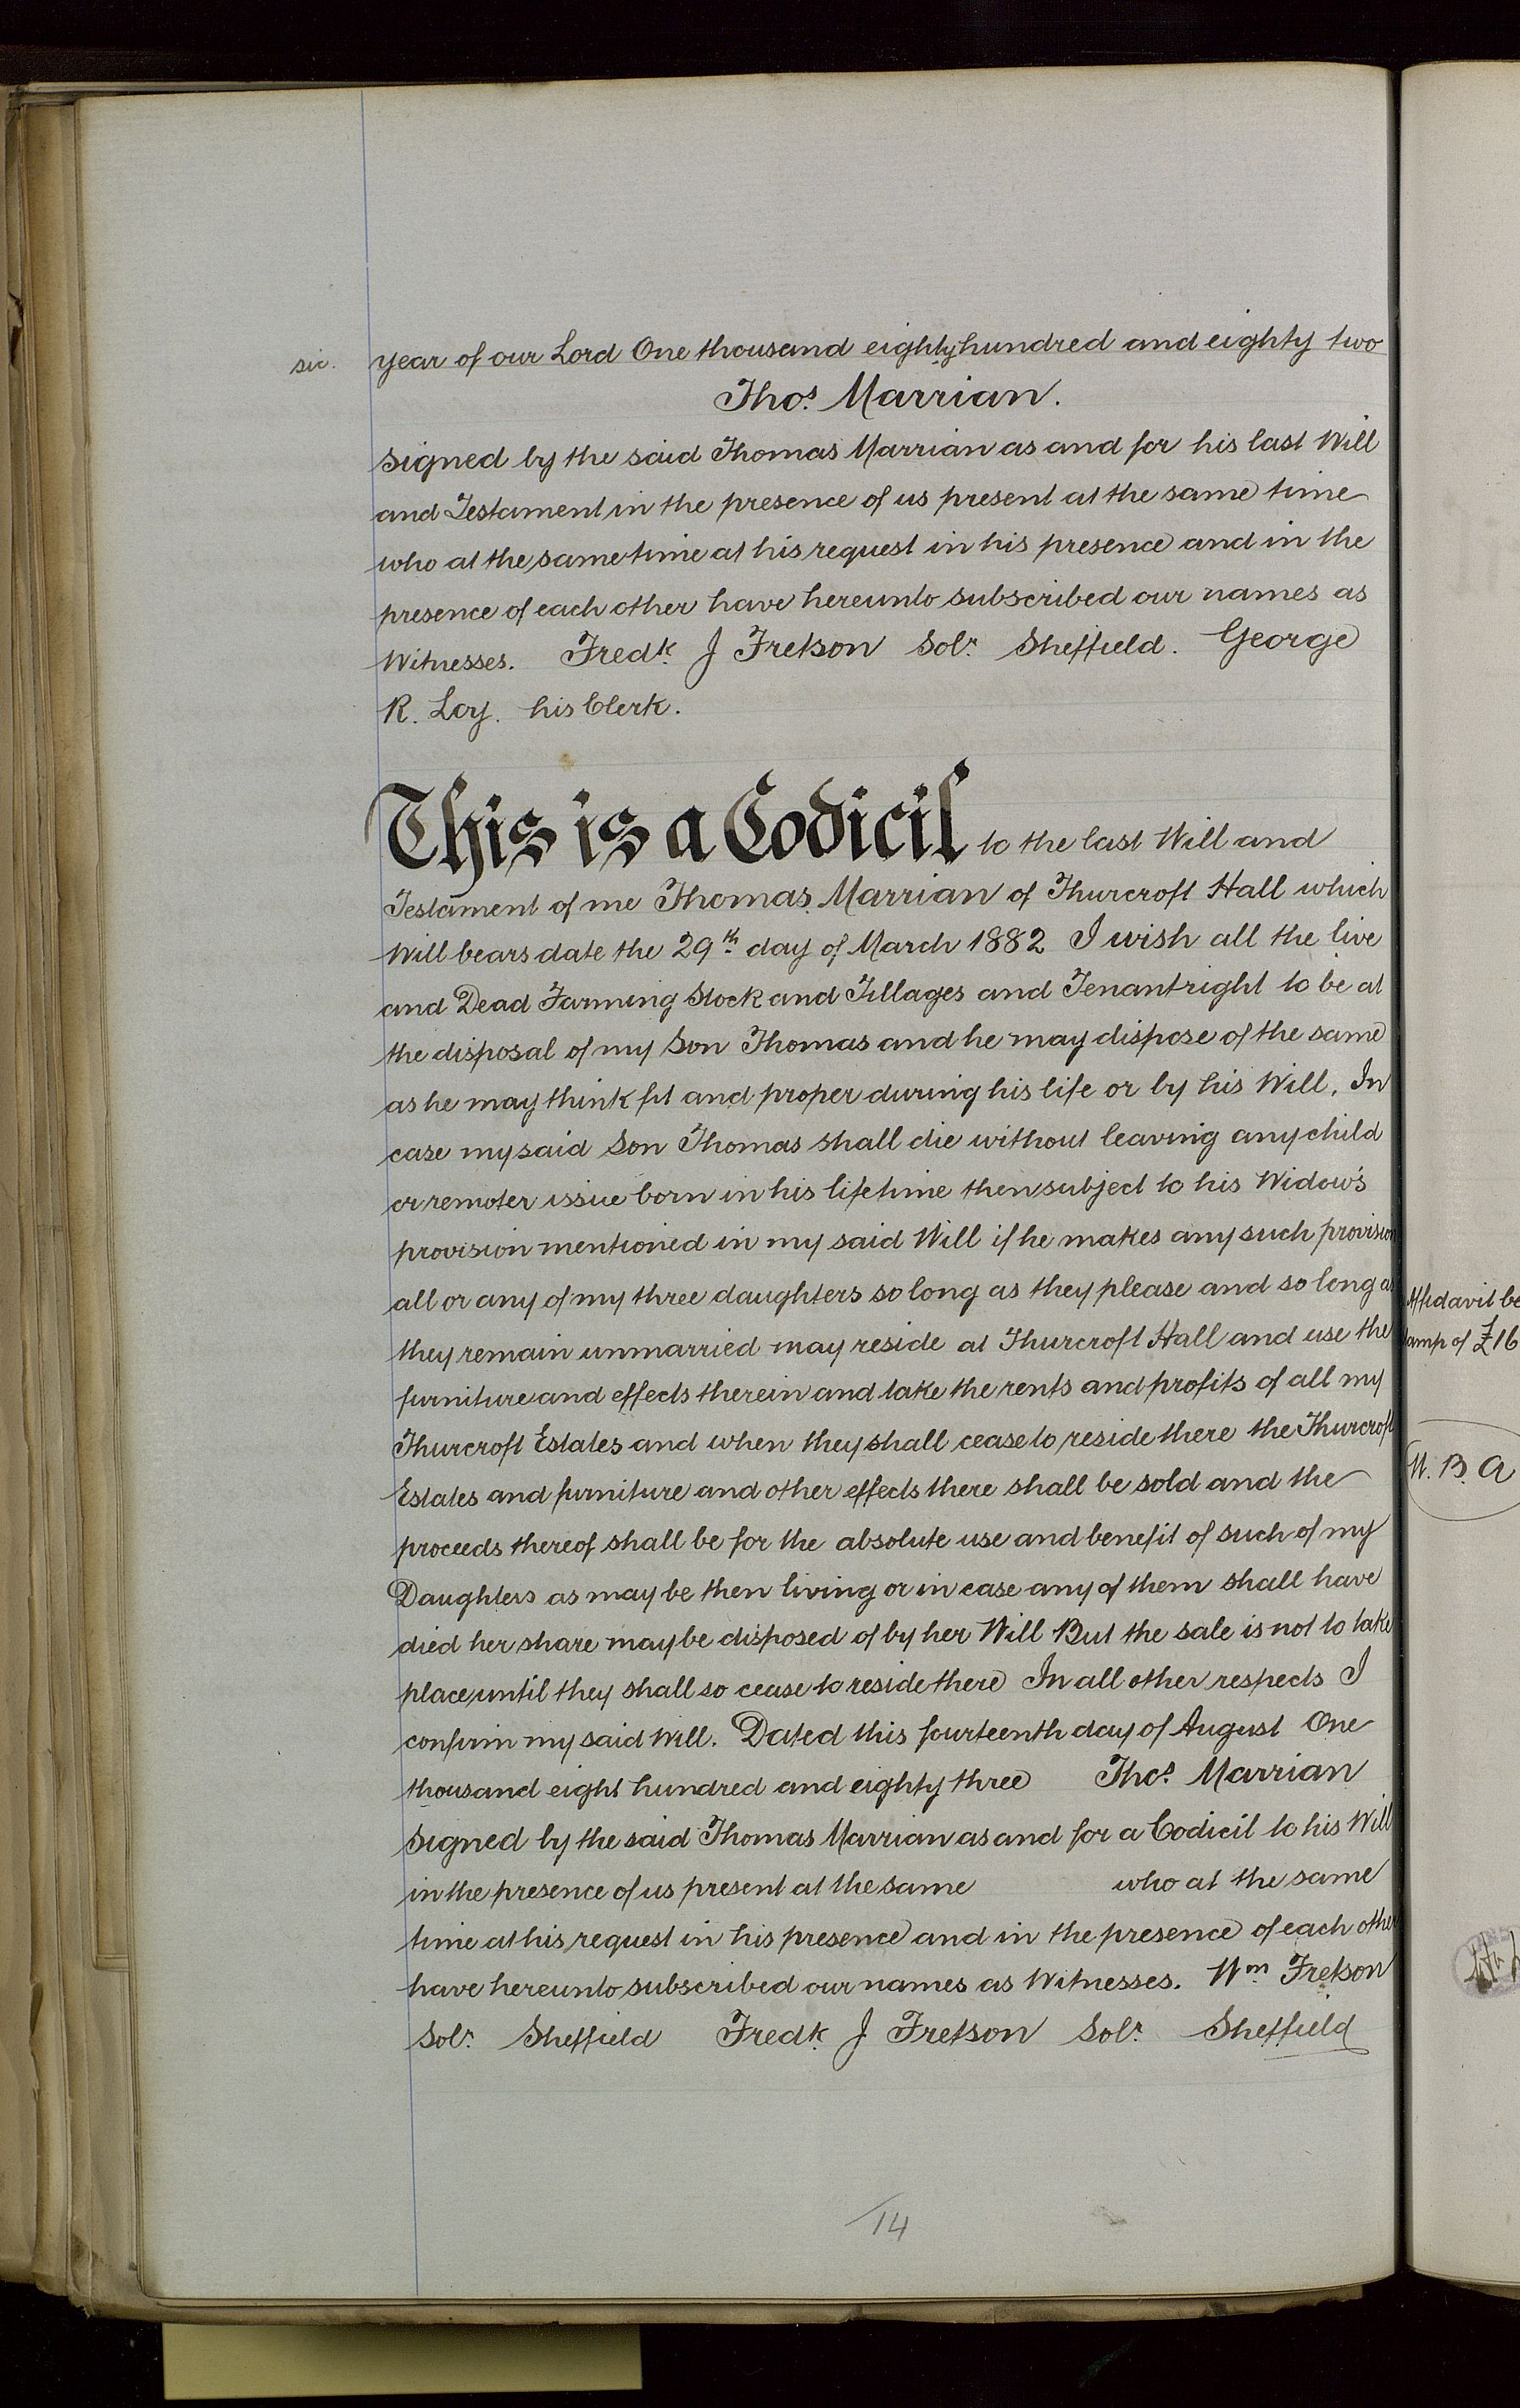 sic. year of our Lord One thousand eighty hundred and eighty two
Thos. Marrian.
Signed by the said Thomas Marrian as and for his last Will
and Testament in the presence of us present at the same time
who at the same time at his request in his presence and in the
presence of each other have hereunto subscribed our names as
Witnesses. Fredk. J Fretson Solr. Sheffield. George
R. Loy. his Clerk.
This is a Codicil to the last Will and
Testament of me Thomas Marrian of Thurcroft Hall which
Will bears date the 29th day of March 1882 I wish all the live
and Dead Farming Stock and Tillages and Tenantright to be at
the disposal of my Son Thomas and he may dispose of the same
as he may think fit and proper during his life or by his Will. In
case my said Son Thomas shall die without leaving any child
or remoter issue born in his lifetime then subject to his Widow's
provision mentioned in my said Will if he makes any such provision
all or any of my three daughters so long as they please and so long as
they remain unmarried may reside at Thurcroft Hall and use the
furniture and effects therein and take the rents and profits of all my
Thurcroft Estates and when they shall cease to reside there the Thurcroft
Estates and furniture and other effects there shall be sold and the
proceeds thereof shall be for the absolute use and benefit of such of my
Daughters as may be then living or in case any of them shall have
died her share may be disposed of by her Will But the sale is not to take
place until they shall so cease to reside there In all other respects I
confirm my said Will. Dated this fourteenth day of August One
thousand eight hundred and eighty three Thos. Marrian
Signed by the said Thomas Marrian as and for a Codicil to his Will
in the presence of us present at the same who at the same
time at his request in his presence and in the presence of each other
have hereunto subscribed our names as Witnesses. Wm. Fretson
Solr. Sheffield Fredk. J Fretson Solr. Sheffield
14
Affidavit be
amp of £16
B. A